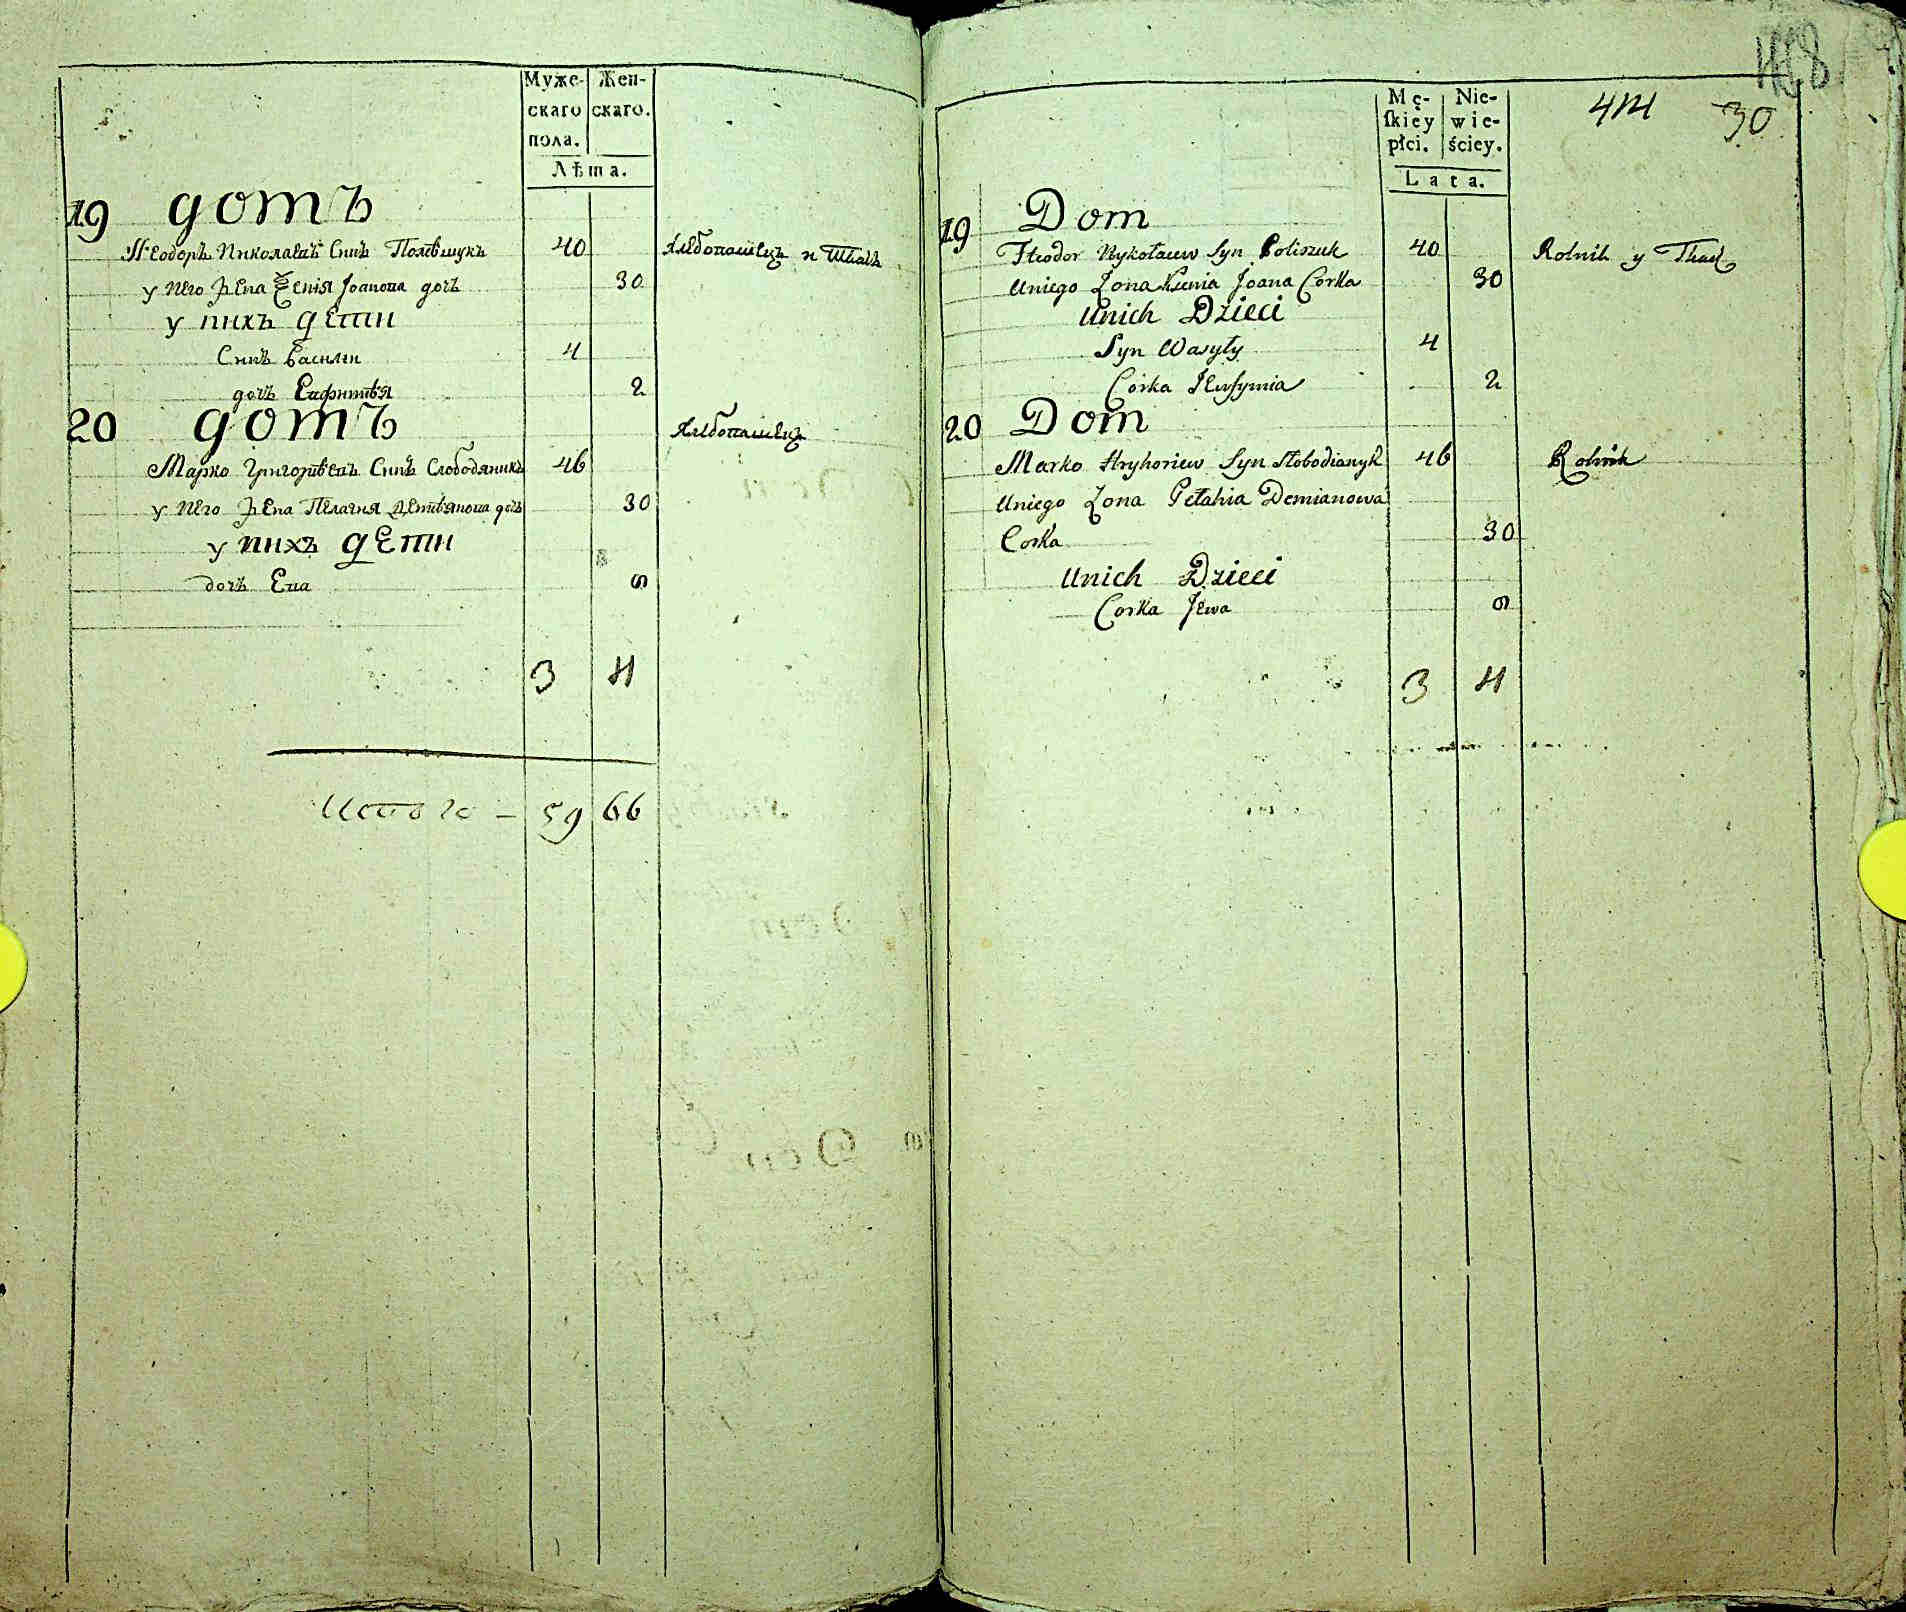 Муже-
скаго
пола.
Жен-
скаго.
Лѣта.
19 Домъ
Ѳеодоръ Николаевъ Синъ Полѣщукъ 40 Хлебопашецъ и Ткачъ
у него Жена Ѯенія Іоанова дочъ 30
у нихъ Дети
Синъ Василий 4
дочъ Евфимѣя 2
20 Домъ Хлебопашецъ
Марко Григорѣевъ Синъ Слободяникъ 46
у него Жена Пелагия Демѣянова дочъ 30
у нихъ Дети
дочъ Ева 9
3 4
Итого - 59 66
468
Mę-
ſkiey
płci.
Nie-
wie-
ściey.
414 30
Lata.
19 Dom
Fteodor Nykołaiew Syn Poliszuk 40 Rolnik y Tkacz
Uniego Żona Ksenia Joana Corka 30
Unich Dzieci
Syn Wasyły 4
Corka Jewfymia 2
20 Dom
Marko Hryhoriew Syn Słobodianyk 46 Rolnik
Uniego Żona Pełahia Demianowa
Corka 30
Unich Dzieci
Corka Jewa 9
3 4